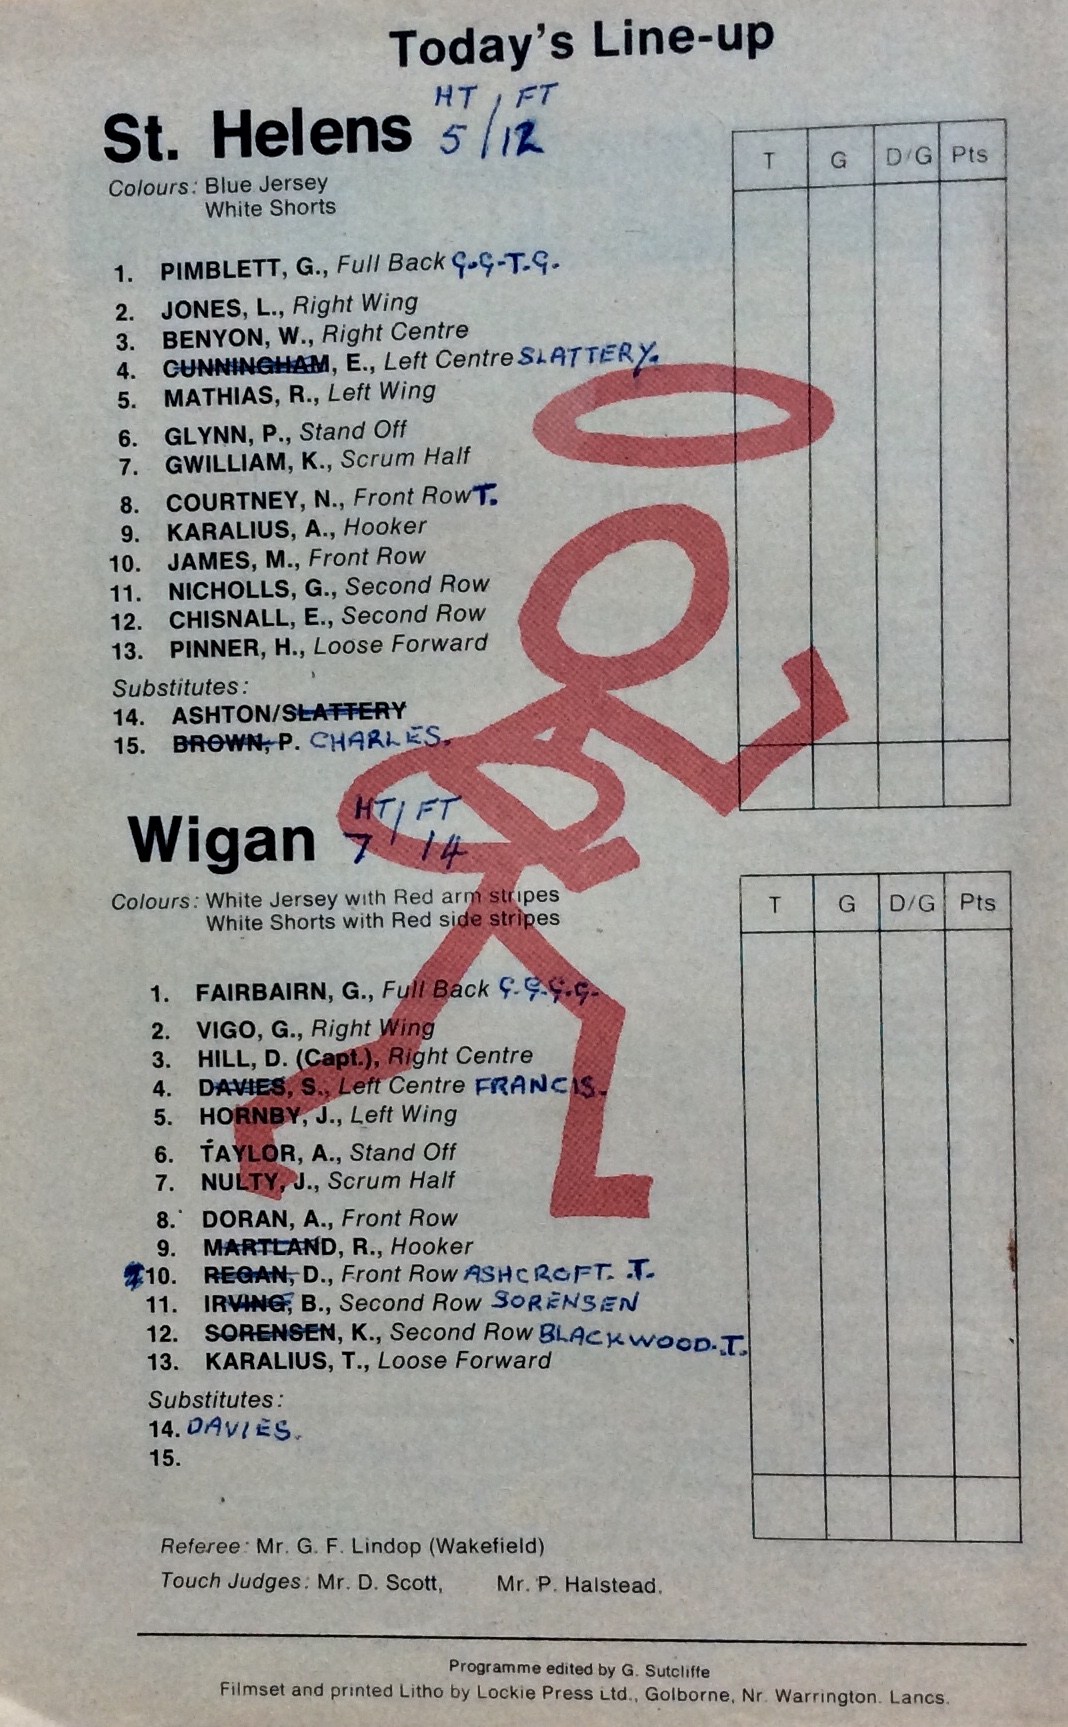 Today's Line-up
HT / FT
St. Helens 5 / 12
Colours: Blue Jersey
White Shorts
T G D/G Pts
1. PIMBLETT, G., Full Back G.G-T.G.
2. JONES, L., Right Wing
3. BENYON, W., Right Centre
4. CUNNINGHAM, E., Left Centre SLATTERY.
5. MATHIAS, R., Left Wing
6. GLYNN, P., Stand Off
7. GWILLIAM, K., Scrum Half
8. COURTNEY, N., Front Row T.
9. KARALIUS, A., Hooker
10. JAMES, M., Front Row
11. NICHOLLS, G., Second Row
12. CHISNALL, E., Second Row
13. PINNER, H., Loose Forward
Substitutes:
14. ASHTON/SLATTERY
15. BROWN, P. CHARLES.
HT / FT
Wigan 7 14
Colours: White Jersey with Red arm stripes
White Shorts with Red side stripes
T G D/G Pts
1. FAIRBAIRN, G., Full Back G.G.G.G.
2. VIGO, G., Right Wing
3. HILL, D. (Capt.), Right Centre
4. DAVIES, S., Left Centre FRANCIS.
5. HORNBY, J., Left Wing
6. TAYLOR, A., Stand Off
7. NULTY, J., Scrum Half
8. DORAN, A., Front Row
9. MARTLAND, R., Hooker
10. REGAN, D., Front Row ASHCROFT. T.
11. IRVING, B., Second Row SORENSEN
12. SORENSEN, K., Second Row BLACKWOOD. T.
13. KARALIUS, T., Loose Forward
Substitutes:
14. DAVIES.
15.
Referee: Mr. G. F. Lindop (Wakefield)
Touch Judges: Mr. D. Scott, Mr. P. Halstead.
Programme edited by G. Sutcliffe
Filmset and printed Litho by Lockie Press Ltd., Golborne, Nr. Warrington. Lancs.